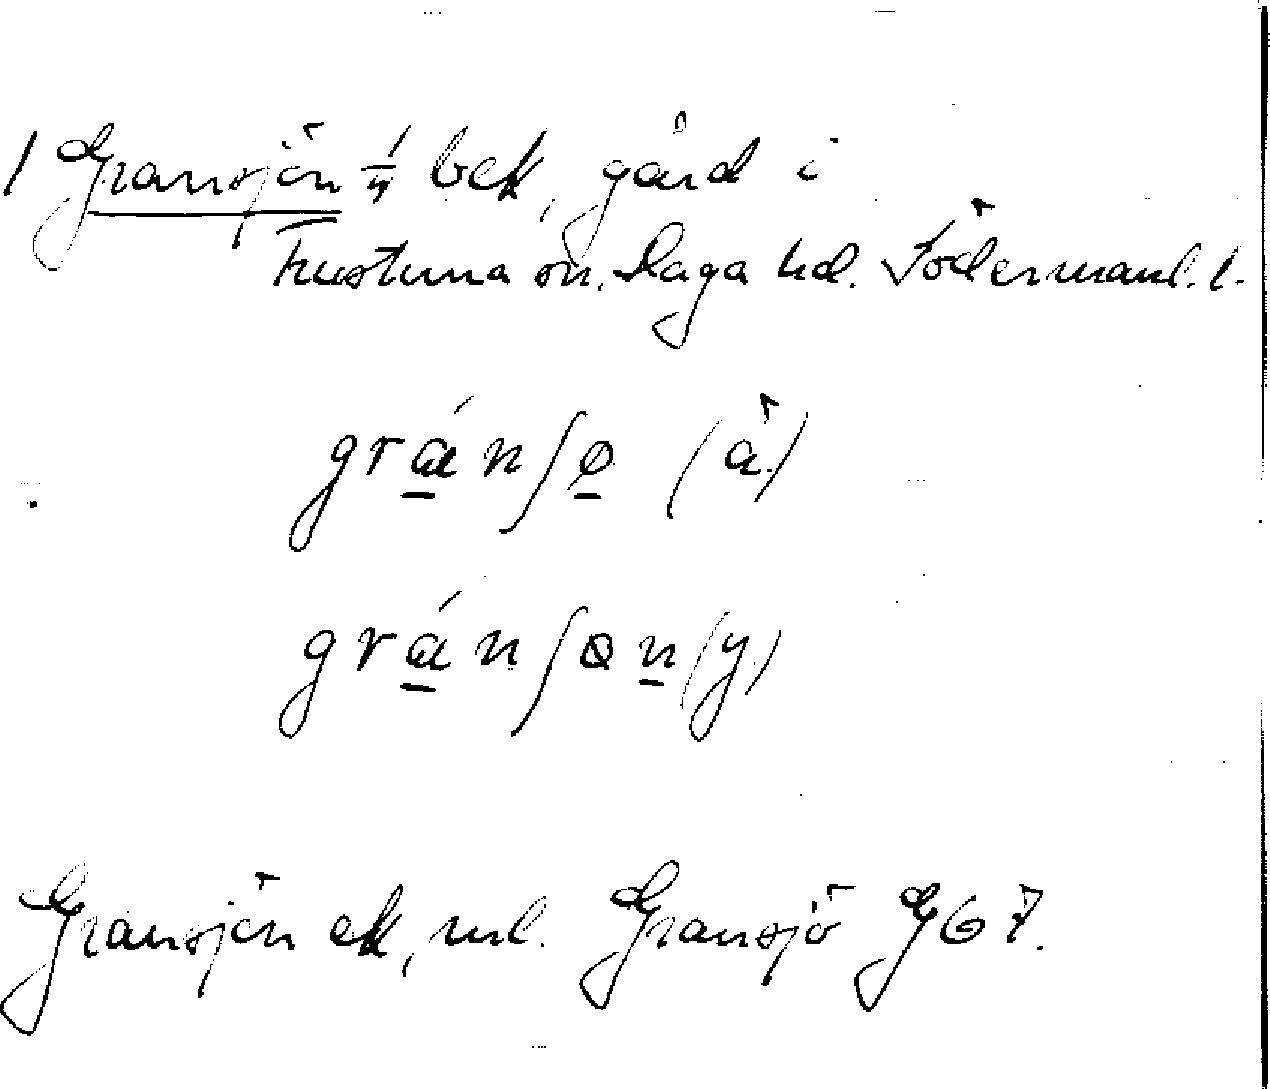 1 Gransjön 1/4 bek, gård i
Frustuna sn. Daga hd. Södermanl. l.
grá̱nʃø̱ (ä.)
grá̱nʃøṉ (y.)
Gransjön ek, ml. Gransjö G 67.